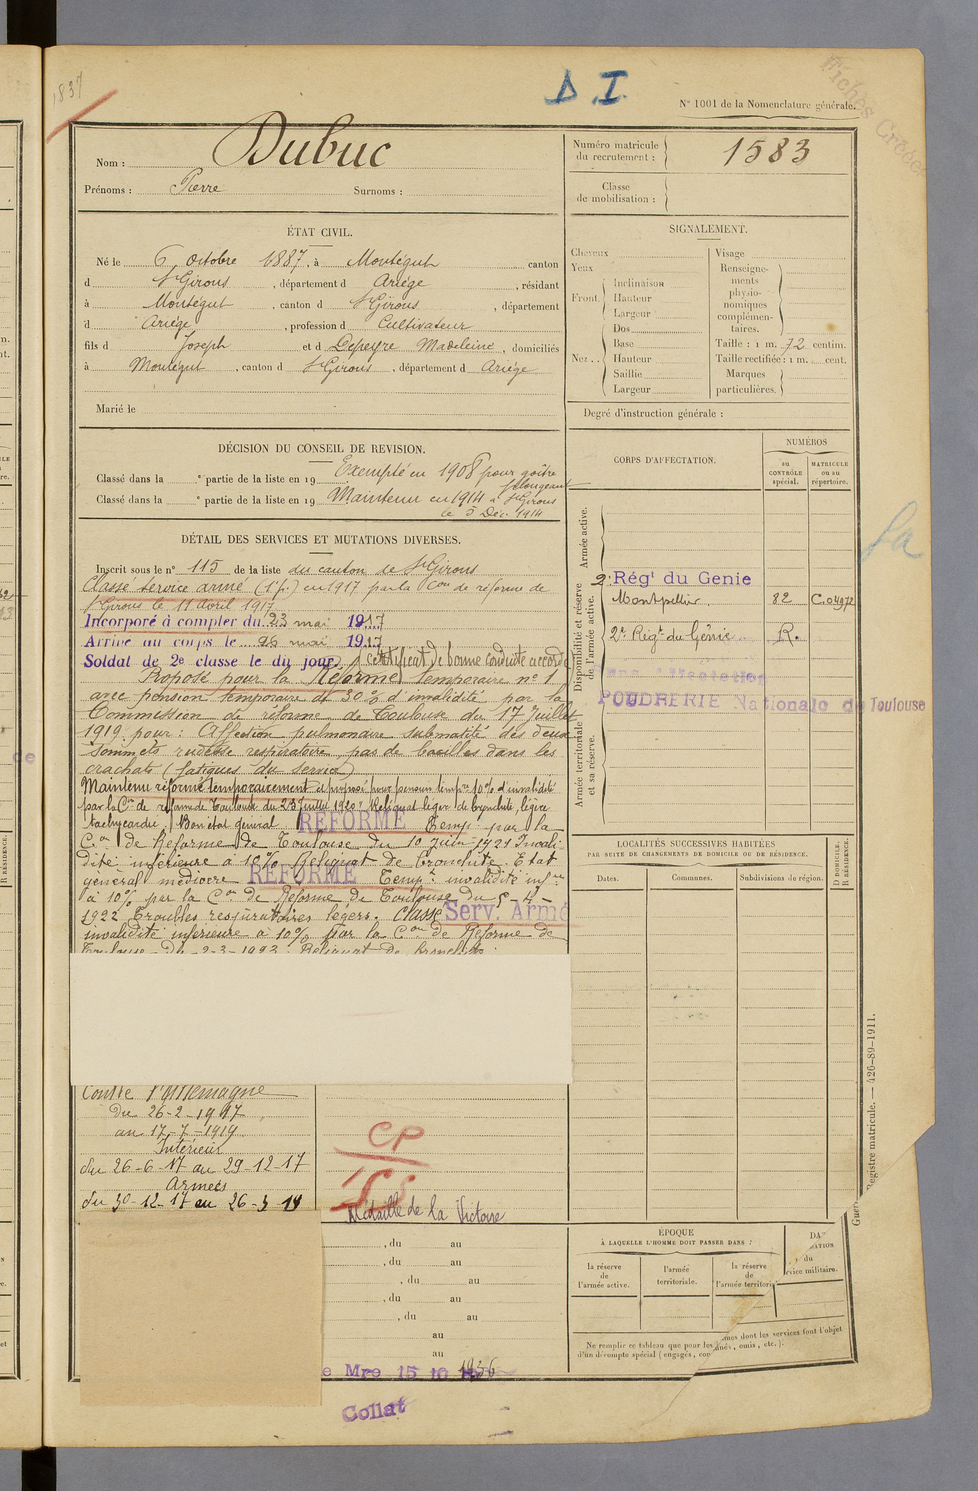 1837
D.I.
N° 1001 de la Nomenclature générale.
Fiches Créées
Nom : Dubuc
Prénoms : Pierre Surnoms :
Numéro matricule du recrutement : 1583
Classe de mobilisation :
ÉTAT CIVIL.
Né le 6 Octobre 1887, à Montégut canton
d St Girons, département d Ariège, résidant
à Montégut, canton d St Girons, département
d Ariège, profession d Cultivateur
fils d Joseph et d Depeyre Madeleine, domiciliés
à Montégut, canton d St Girons, département d Ariège
Marié le
SIGNALEMENT.
Cheveux
Yeux
Front
Inclinaison
Hauteur
Largeur
Nez
Dos
Base
Hauteur
Saillie
Largeur
Visage
Renseignements physionomiques complémentaires.
Taille : 1 m. 72 centim.
Taille rectifiée : 1 m. cent.
Marques particulières.
Degré d'instruction générale :
DÉCISION DU CONSEIL DE REVISION.
Classé dans la ° partie de la liste en 19 Exempté en 1908 pour goître
Classé dans la ° partie de la liste en 19 Maintenu en 1914 à St Girons
le 5 Déc. 1914
DÉTAIL DES SERVICES ET MUTATIONS DIVERSES.
Inscrit sous le n° 115 de la liste du canton de St Girons
Classé service armé (1e p.) en 1917 par la Con de réforme de
St Girons le 11 Avril 1917
Incorporé à compter du 23 mai 1917
Arrivé au corps le 26 mai 1917
Soldat de 2e classe le dit jour, certificat de bonne conduite accordé
Proposé pour la Réforme Temporaire n° 1
avec pension temporaire de 30% d'invalidité par la
Commission de réforme de Toulouse du 17 Juillet
1919 pour : Affection pulmonaire submatité des deux
sommets rudesse respiratoire, pas de bacilles dans les
crachats (fatigues du service)
Maintenu réformé temporairement et proposé pour pension tempre 10% d'invalidité
par la Con de réforme de Toulouse du 23 Juillet 1920. Reliquat léger de bronchite, légère
tachycardie. Bon état général RÉFORMÉ Temp. par la
Con de Réforme de Toulouse du 10 Juin 1921 Invali-
dité inférieure à 10% Reliquat de bronchite. Etat
général médiocre RÉFORMÉ Tempt invalidité infre
à 10% par la Con de Réforme de Toulouse du 5-4-
1922 Troubles respiratoires légers. Classé Serv. Armé
invalidité inférieure à 10% par la Con de Réforme de
Toulouse du 2-3-1923 : Reliquat de bronchite
CORPS D'AFFECTATION.
NUMÉROS
au CONTRÔLE spécial.
MATRICULE ou au répertoire.
Armée active.
Disponibilité et réserve de l'armée active.
Armée territoriale et sa réserve.
2e Régt du Génie
Montpellier. 82
2e Régt du Génie R.
Sans affectation
POUDRERIE Nationale de Toulouse
LOCALITÉS SUCCESSIVES HABITÉES
PAR SUITE DE CHANGEMENTS DE DOMICILE OU DE RÉSIDENCE.
Dates.
Communes.
Subdivisions de région.
D DOMICILE.
R RÉSIDENCE.
Contre l'Allemagne
Du 26-2-1917
au 17-7-1919
Intérieur
du 26-6-17 au 29-12-17
Armées
du 30-12-17 au 26-3-19
CP
Médaille de la Victoire
, du au
, du au
, du au
, du au
, du au
au
au
e Mre 15 10 1936
Collat
ÉPOQUE
À LAQUELLE L'HOMME DOIT PASSER DANS :
la réserve de l'armée active.
l'armée territoriale.
la réserve de l'armée territoria
DA
ATION
du
vice militaire.
Ne remplir ce tableau que pour les mes dont les services font l'objet
d'un décompte spécial (engagés, con nés, omis, etc.).
Registre matricule. — 426-89-1911.